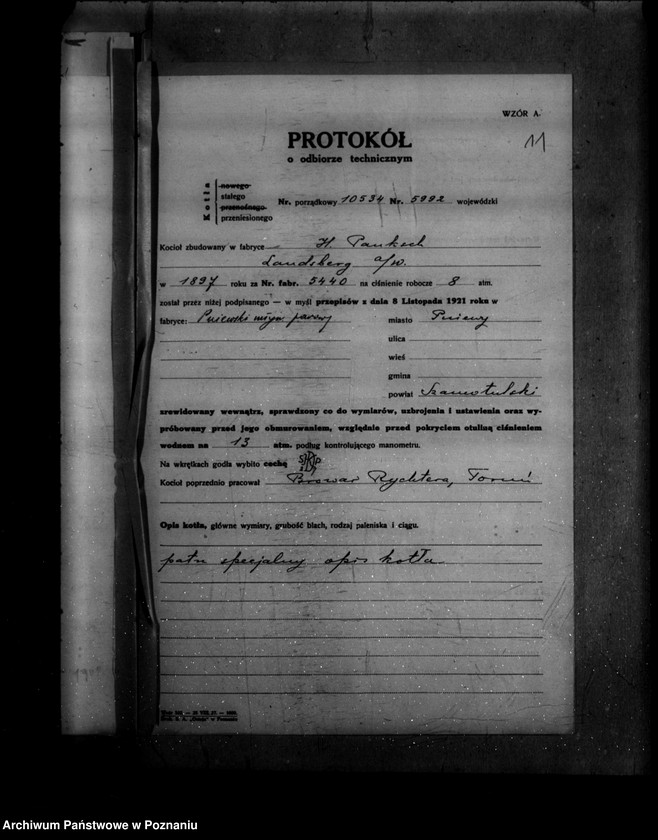 WZÓR A.
11
PROTOKÓŁ
o odbiorze technicznym
Kotła
nowego
stałego
przenośnego
przeniesionego
Nr. porządkowy 10534 Nr. 5992 wojewódzki
Kocioł zbudowany w fabryce H. Pauksch
Landsberg a/W.
w 1897 roku za Nr. fabr. 5440 na ciśnienie robocze 8 atm.
został przez niżej podpisanego — w myśl przepisów z dnia 8 Listopada 1921 roku w
fabryce: Pniewski młyn parowy miasto Pniewy
ulica
wieś
gmina
powiat Szamotulski
zrewidowany wewnątrz, sprawdzony co do wymiarów, uzbrojenia i ustawienia oraz wy-
próbowany przed jego obmurowaniem, względnie przed pokryciem otuliną ciśnieniem
wodnem na 13 atm. podług kontrolującego manometru.
Na wkrętkach godła wybito cechę
Kocioł poprzednio pracował Browar Rychtera, Toruń
Opis kotła, główne wymiary, grubość blach, rodzaj paleniska i ciągu.
patrz specjalny opis kotła
w Poznaniu
Archiwum Państwowe w Poznaniu